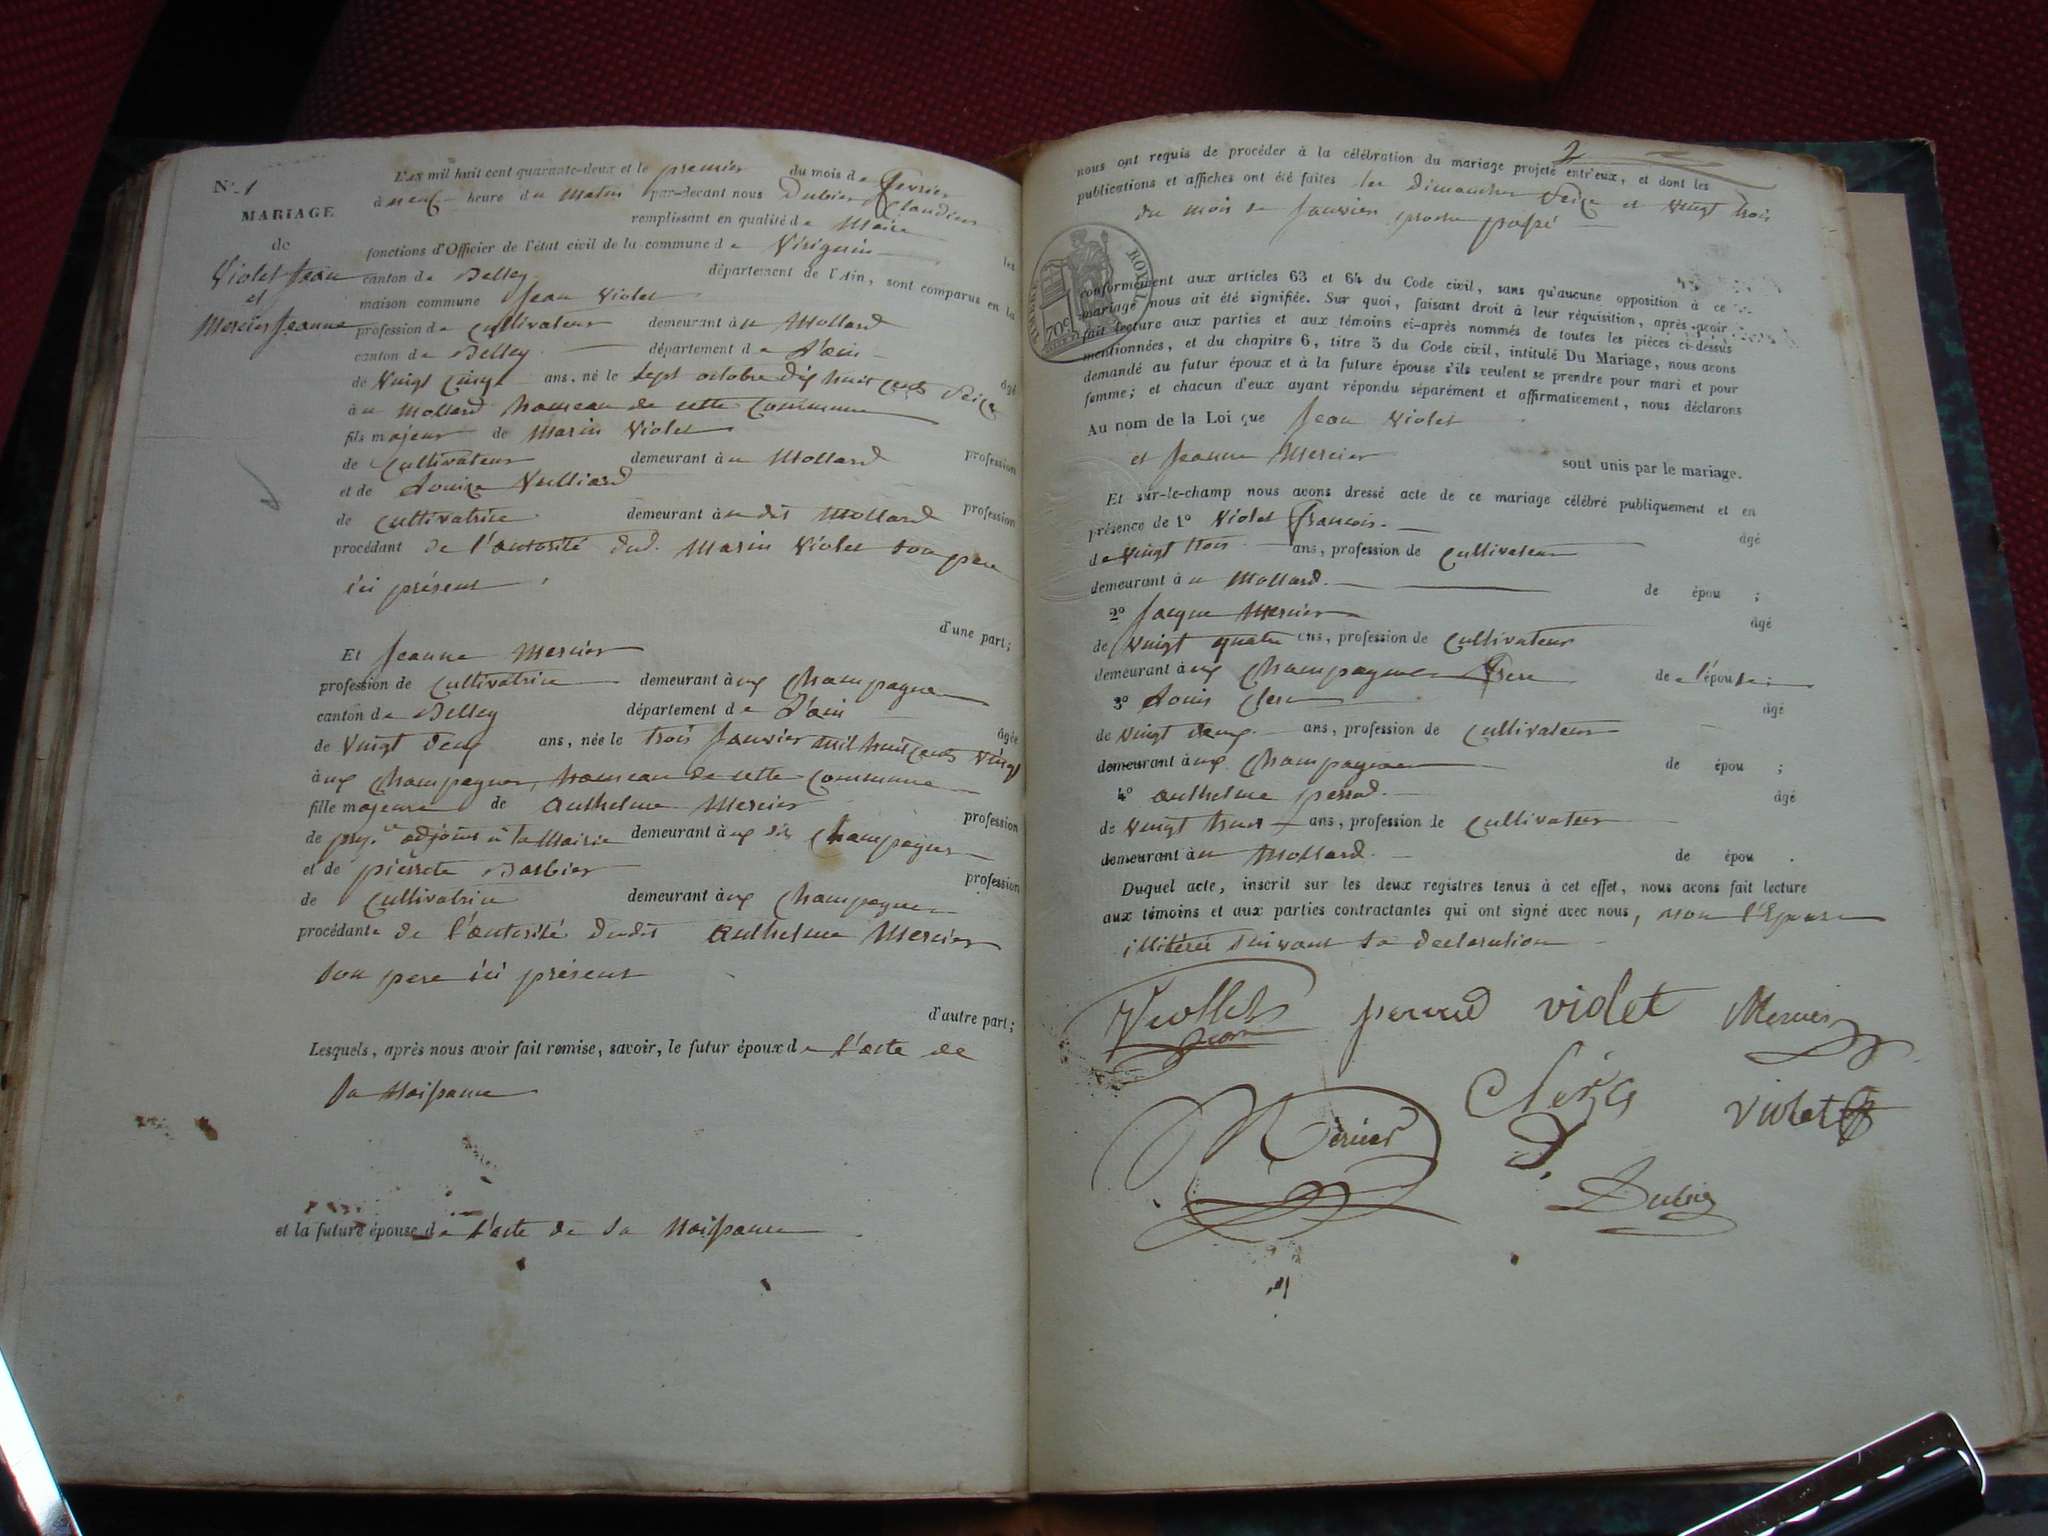 N.º 1
MARIAGE
de
Violet Jean
et
Mercier Jeanne
L'an mil huit cent quarante-deux et le premier du mois de fevrier
à neuf heure du Matin par-devant nous Dubier Claudius
remplissant en qualité de Maire les
fonctions d'Officier de l'état civil de la commune de Virignin
canton de Belley département de l'Ain, sont comparus en la
maison commune Jean Violet
profession de Cultivateur demeurant à u Mollard
canton de Belley département de L'ain
âgé
de Vingt Cinq ans, né le Sept octobre dix huit cents Seize
à u Mollard hameau de cette Commune
fils majeur de Marin Violet
profession
de Cultivateur demeurant à u Mollard
et de Louise Vulliard
profession
de Cultivatrice demeurant à u dit Mollard
procédant de l'autorité dud. Marin Violet son pere
ici présent
d'une part;
Et Jeanne Mercier
profession de Cultivatrice demeurant à ux Champagnes
canton de Belley département de L'ain
âgée
de Vingt deux ans, née le trois Janvier mil huit cents Vingt
à ux Champagnes, hameau de cette Commune
fille majeure de Anthelme Mercier
profession
de pro.re adjoint à la Mairie demeurant à ux dit Champagnes
et de pierrete Barbier
profession
de Cultivatrice demeurant à ux Champagnes
procédante de l'autorité dudit Anthelme Mercier
son pere ici présent
d'autre part;
Lesquels, après nous avoir fait remise, savoir, le futur époux de L'acte de
sa Naissance
et la future épouse de L'acte de sa Naissance
2
nous ont requis de procéder à la célébration du mariage projeté entr'eux, et dont les
publications et affiches ont été faites les Dimanches Seize et Vingt trois
du mois de Janvier proche passé
ROYAL
70c
conformément aux articles 63 et 64 du Code civil, sans qu'aucune opposition à ce
mariage nous ait été signifiée. Sur quoi, faisant droit à leur réquisition, après avoir
fait lecture aux parties et aux témoins ci-après nommés de toutes les pièces ci-dessus
mentionnées, et du chapitre 6, titre 5 du Code civil, intitulé Du Mariage, nous avons
demandé au futur époux et à la future épouse s'ils veulent se prendre pour mari et pour
femme; et chacun d'eux ayant répondu séparément et affirmativement, nous déclarons
Au nom de la Loi que Jean Violet
et Jeanne Mercier sont unis par le mariage.
Et sur-le-champ nous avons dressé acte de ce mariage célébré publiquement et en
présence de 1º Violet françois. âgé
de Vingt trois ans, profession de Cultivateur
demeurant à u Mollard. de épou ;
2º Jacque Mercier âgé
de Vingt quatre ans, profession de Cultivateur
demeurant à ux Champagnes frere de l'épouse;
3º Louis Clerc âgé
de Vingt deux ans, profession de Cultivateur
demeurant à ux Champagnes de épou ;
4º Anthelme perrod. âgé
de Vingt trois ans, profession de Cultivateur
demeurant à u Mollard. de épou .
Duquel acte, inscrit sur les deux registres tenus à cet effet, nous avons fait lecture
aux témoins et aux parties contractantes qui ont signé avec nous, non l'Epouse
illitérée suivant sa declaration
Viollet Jean perrod violet Mercier
Mercier Clerc violet
Dubier